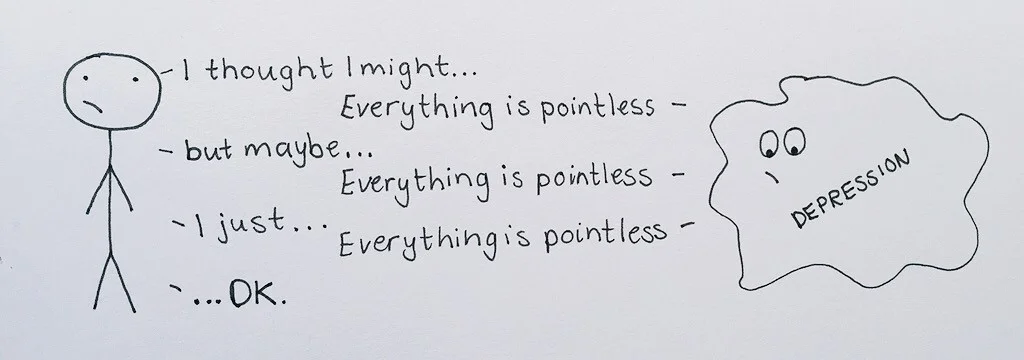 - I thought I might...
Everything is pointless -
- but maybe...
Everything is pointless -
- I just...
Everything is pointless -
- ...OK.
DEPRESSION